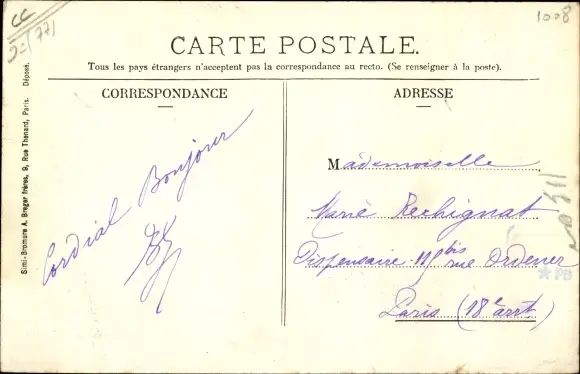 CC
1008
CARTE POSTALE.
Tous les pays étrangers n'acceptent pas la correspondance au recto. (Se renseigner à la poste).
CORRESPONDANCE
ADRESSE
Simi-Bromure A. Breger frères, 9, Rue Thénard, Paris. Déposé.
Cordial Bonjour
Mademoiselle
Marie Rechignat
Dispensaire bis rue Ordener
Paris (18e arrt)
PB